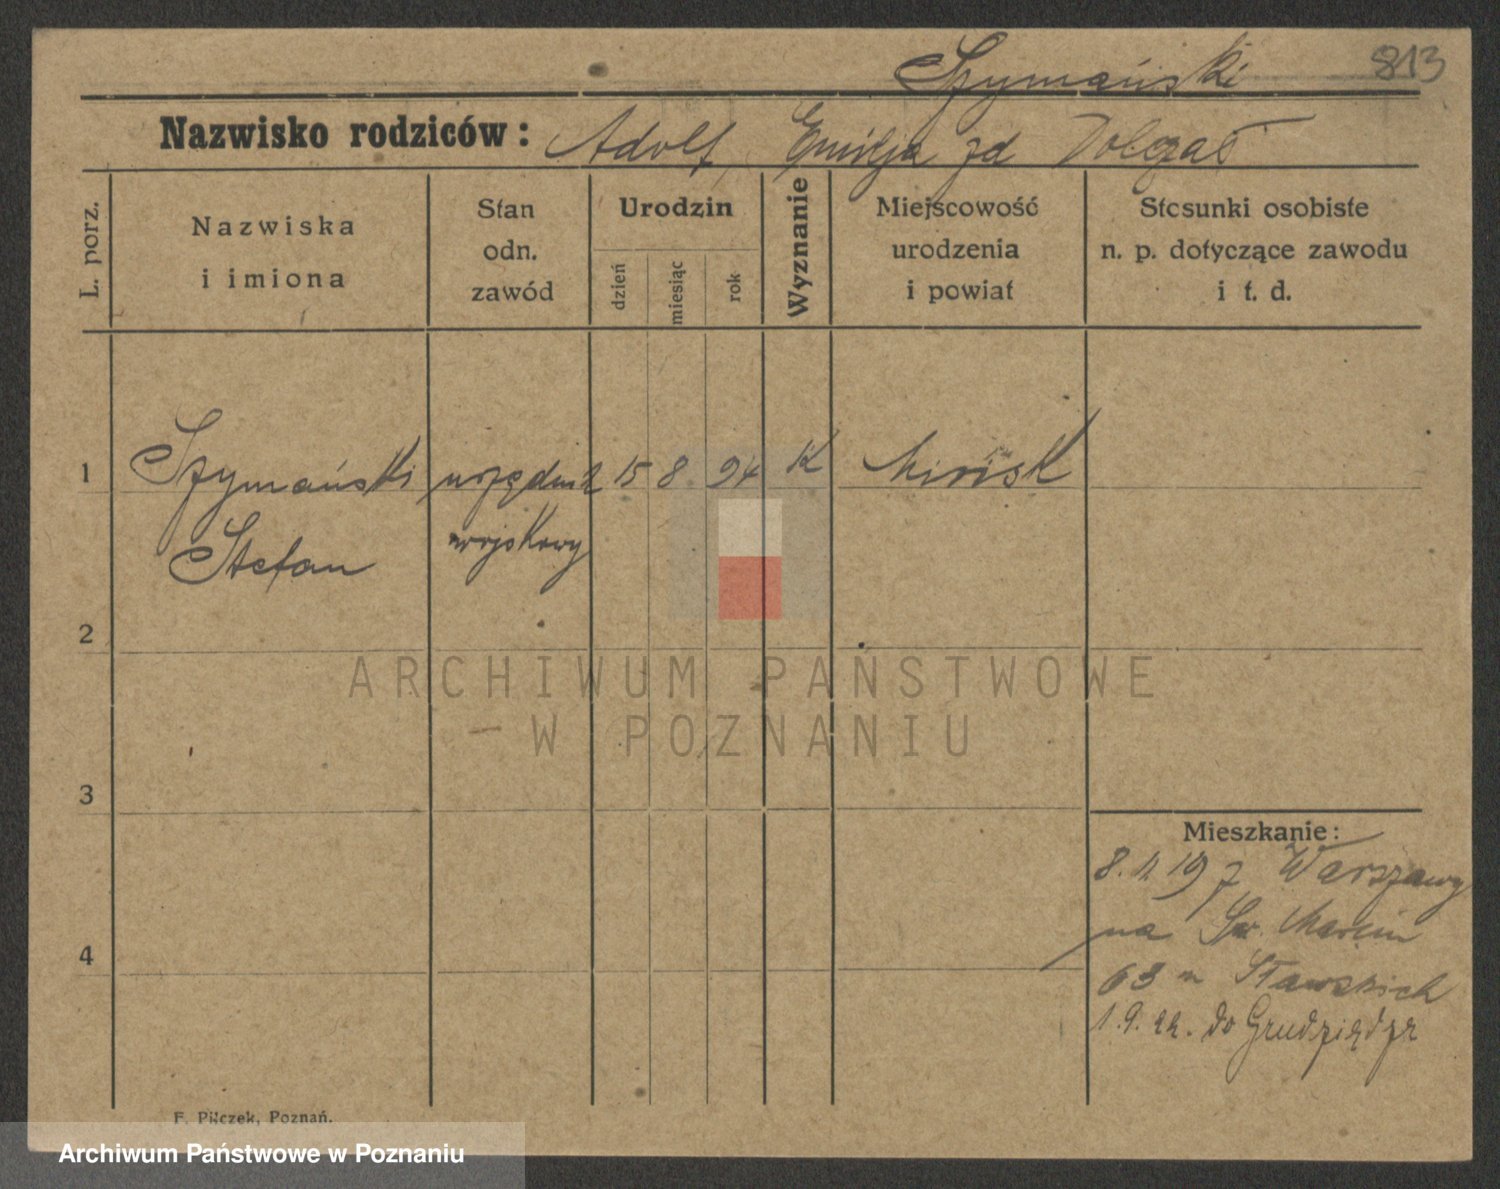 Szymański 813
Nazwisko rodziców: Adolf, Emilja zd Dolezał
L. porz.
Nazwiska
i imiona
Stan
odn.
zawód
Urodzin
dzień
miesiąc
rok
Wyznanie
Miejscowość
urodzenia
i powiat
Stosunki osobiste
n. p. dotyczące zawodu
i t. d.
1 Szymański urzędnik 15 8 94 K Mińsk
Stefan wojskowy
2
ARCHIWUM PAŃSTWOWE
W POZNANIU
3
Mieszkanie:
8. 11. 19 z Warszawy
na Św. Marcin
4
63 m Sławskich
1. 9. 22. do Grudziądza
F. Pilczek, Poznań.
Archiwum Państwowe w Poznaniu